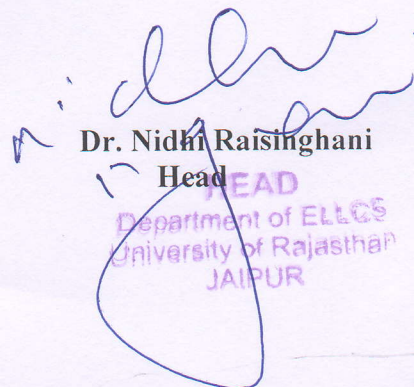 Nidhi
Dr. Nidhi Raisinghani
Head
HEAD
Department of ELLCS
University of Rajasthan
JAIPUR